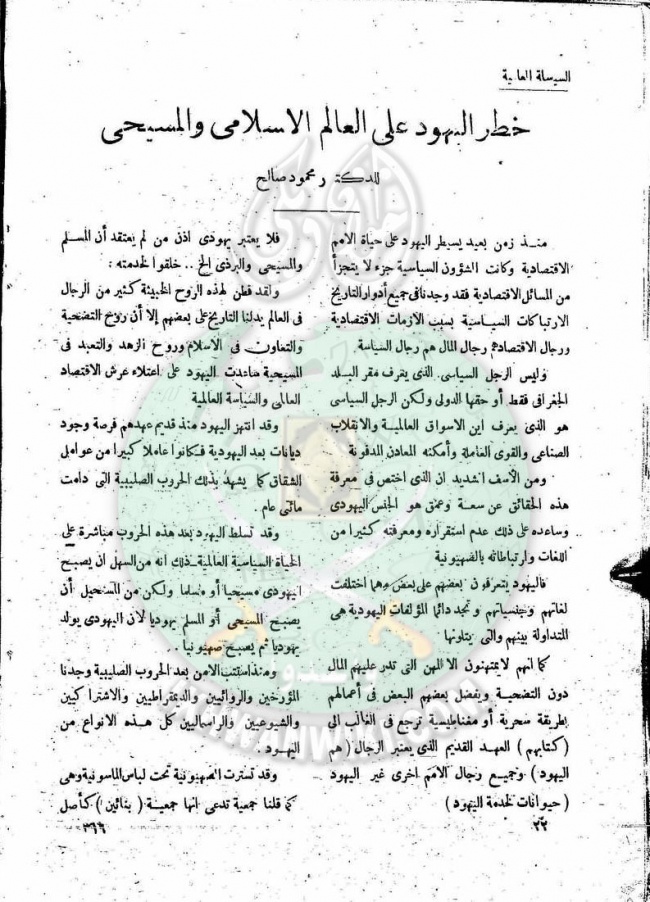 السياسة العالمية
خطر اليهود على العالم الاسلامى والمسيحى
للدكتور محمود صالح
منذ زمن بعيد يسيطر اليهود على حياة الامم
الاقتصادية وكانت الشؤون السياسية جزء لا يتجزأ
من المسائل الاقتصادية فقد وجدنا فى جميع أدوار التاريخ
الارتباكات السياسية بسبب الازمات الاقتصادية
ورجال الاقتصاد هم رجال المال هم رجال السياسة
وليس الرجل السياسى الذى يعرف مقر البلد
الجغرافى فقط أو حقها الدولى ولكن الرجل السياسى
هو الذى يعرف اين الاسواق العالمية والانقلاب
الصناعى والقوى العاملة وأمكنه المعادن المدفونة
ومن الأسف الشديد ان الذى اختص فى معرفة
هذه الحقائق عن سعة وعمق هو الجنس اليهودى
وساعده على ذلك عدم استقراره ومعرفته كثيرا من
اللغات وارتباطاته بالصهيونية
فاليهود يتعرفون بعضهم على بعض وهما اختلفت
لغاتهم وجنسياتهم وتجد دائما المؤلفات اليهودية هى
المتداولة بينهم والتى يتلونها
كما انهم لا يمتهنون الا المهن التى تدر عليهم المال
دون التضحية ويفضل بعضهم البعض فى أعمالهم
بطريقة سحرية أو مغناطيسية ترجع فى الغالب الى
(كتابهم) العهد القديم الذى يعتبر الرجال (هم
اليهود) وجميع رجال الامم اخرى غير اليهود
(حيوانات لخدمة اليهود)
٢٢
فلا يعتبر يهودى اذن من لم يعتقد أن المسلم
والمسيحى والبرذى الخ .. خلقوا لخدمته :
ولقد فطن لهذه الروح الخبيثة كثير من الرجال
فى العالم يدلنا التاريخ على بعضهم إلا أن روح التضحية
والتعاون فى الاسلام وروح الزهد والتعبد فى
المسيحية ساعدت اليهود على اعتلاء عرش الاقتصاد
العالمى والسياسة العالمية
وقد انتهز اليهود منذ قديم عهدهم فرصة وجود
ديانات بعد اليهودية فكانوا عاملا كبيرا من عوامل
الشقاق كما يشهد بذلك الحروب الصليبية التى دامت
مائتى عام .
وقد تسلط اليهود بعد هذه الحروب مباشرة على
الحياة السياسية العالمية ـ ذلك انه من السهل ان يصبح
اليهودى مسيحيا أو مسلما ولكن من المستحيل أن
يصبح المسيحى أو المسلم يهوديا لأن اليهودى يولد
يهوديا ثم يصبح صهيونيا ..
ومنذ استتب الامن بعد الحروب الصليبية وجدنا
المؤرخين والروائيين والديمقراطيين والاشتراكيين
والشيوعيين والراسماليين كل هذه الانواع من
اليهود
وقد تسترت الصهيونية تحت لباس الماسونية وهى
كما قلنا جمعية تدعى انها جمعية (بنائين) كأصل
٣٦٦